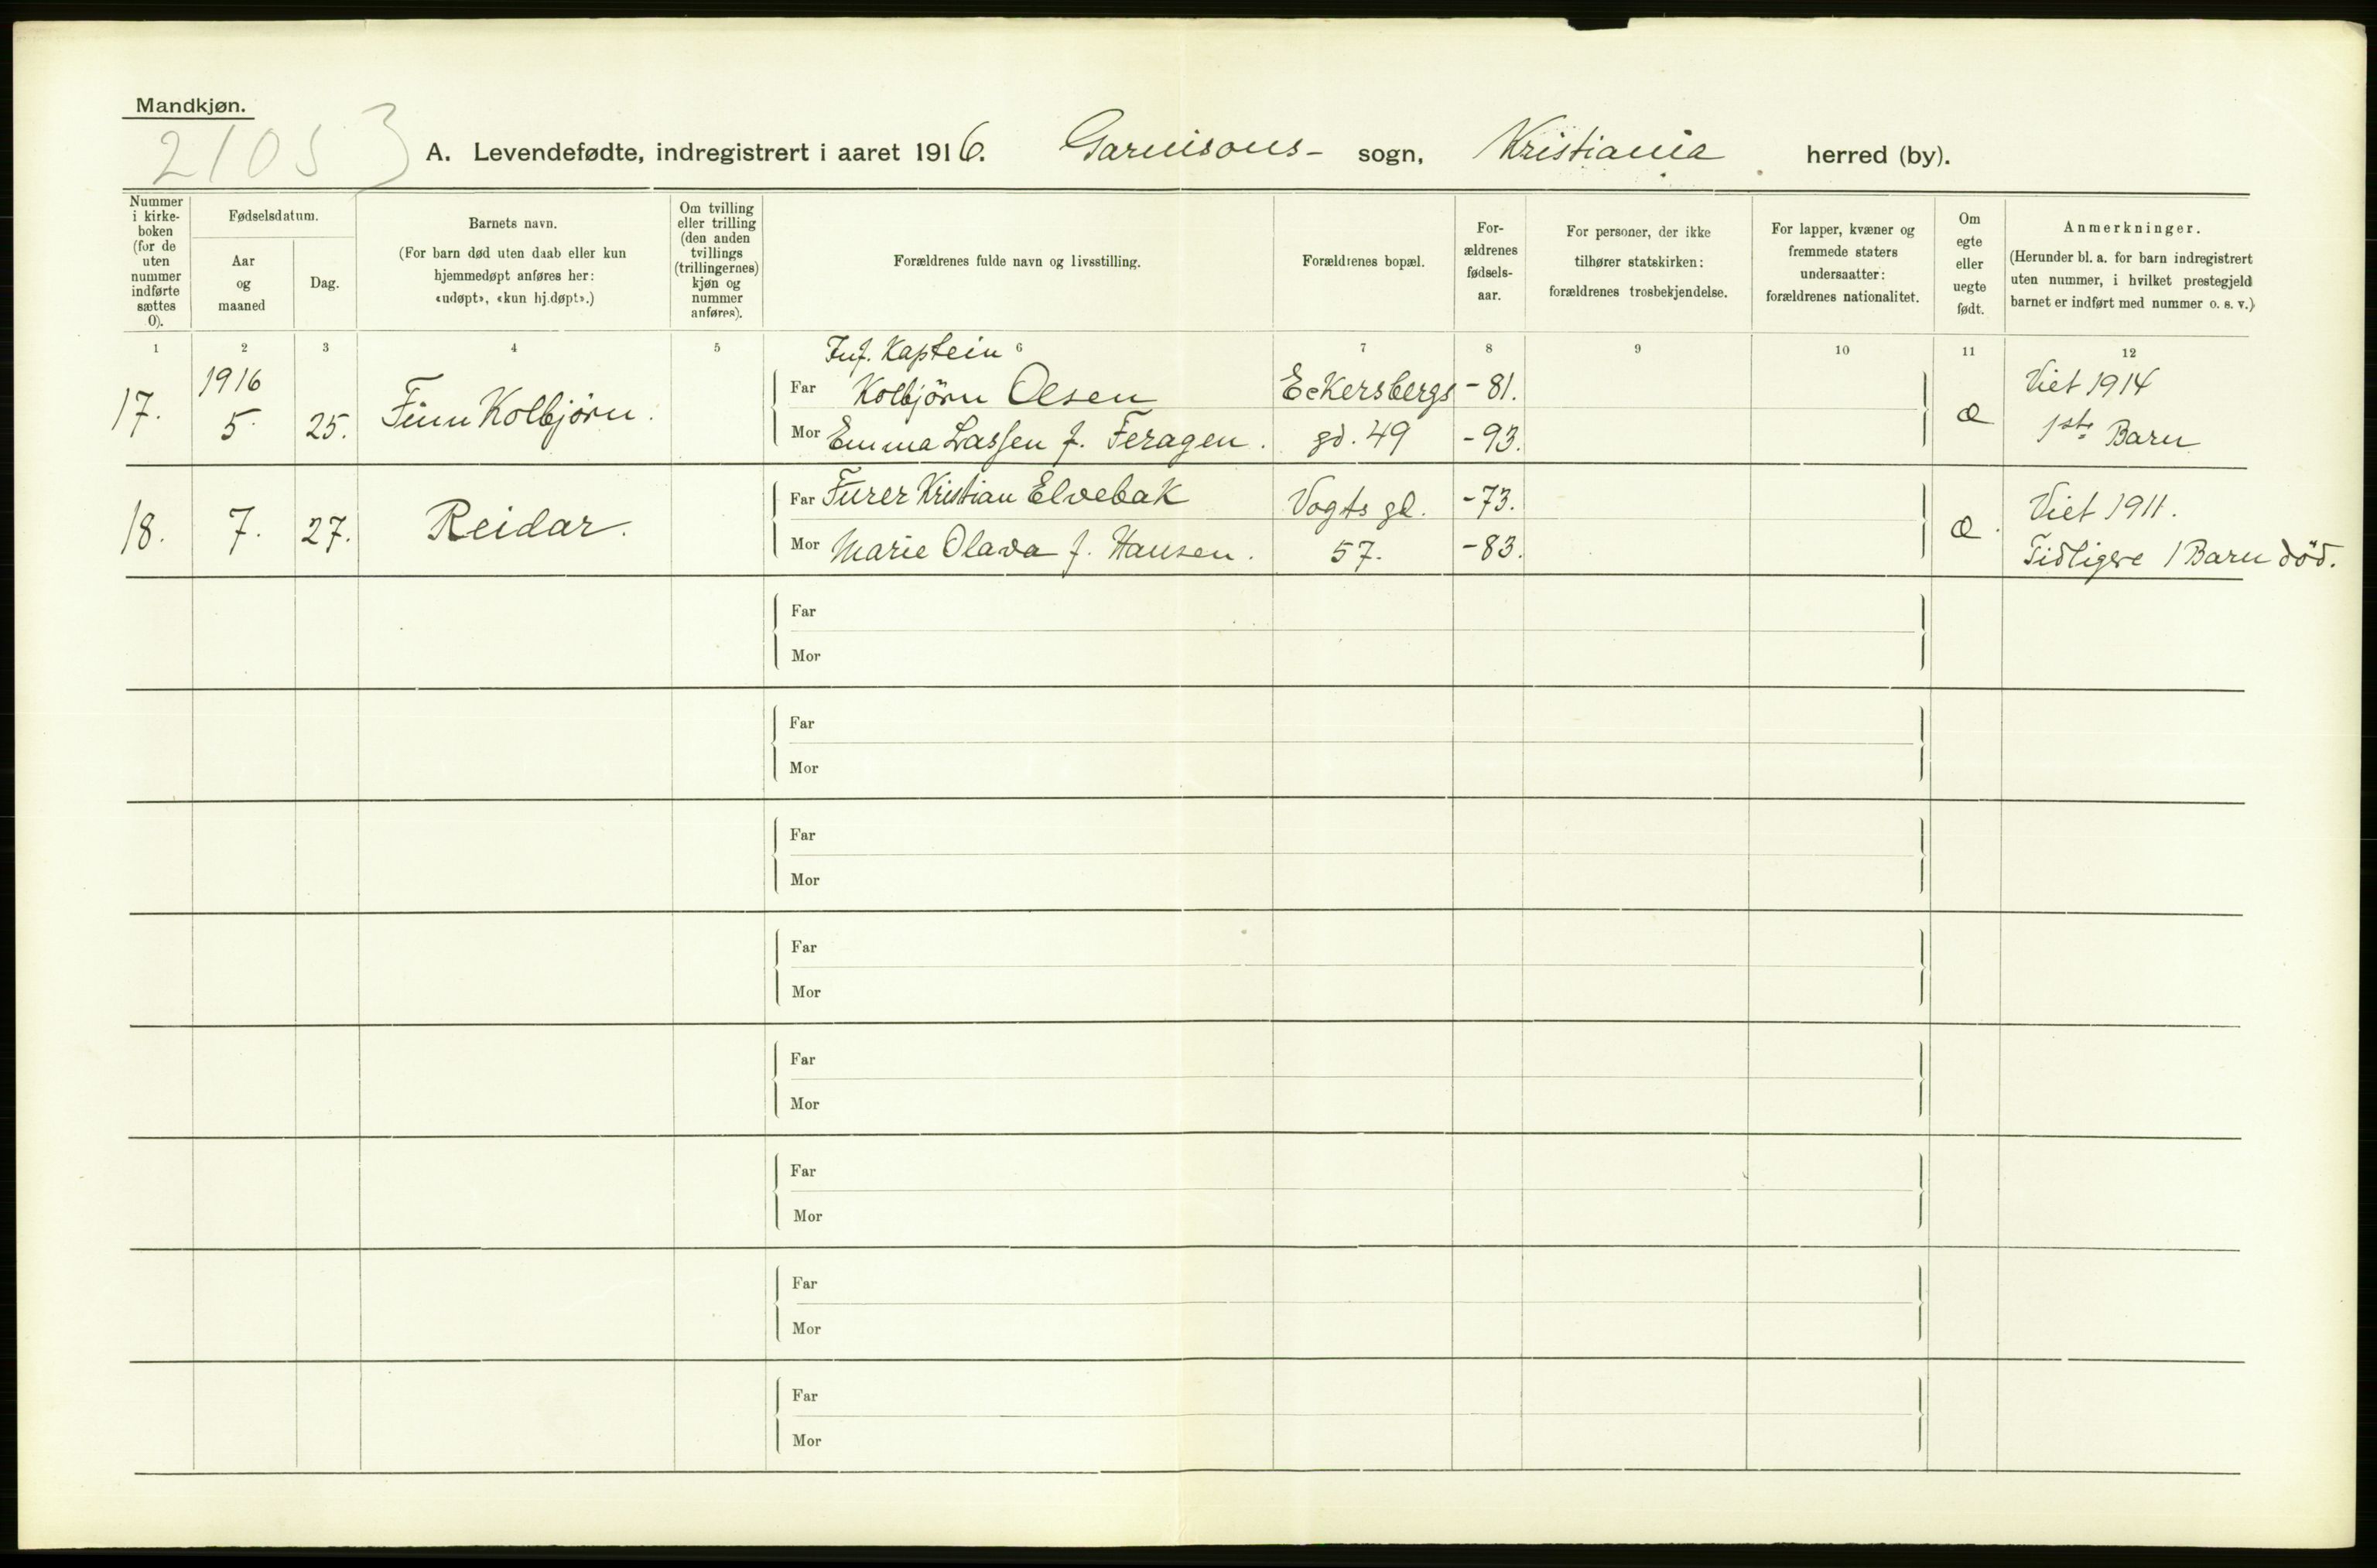 Mandkjøn.
21053
A. Levendefødte, indregistrert i aaret 1916. Garnisons- sogn, Kristiania herred (by).
Nummer i kirke-boken (for de uten nummer indførte sættes 0).
Fødselsdatum.
Aar og maaned
Dag.
Barnets navn.
(For barn død uten daab eller kun hjemmedøpt anføres her: «udøpt», «kun hj.døpt».)
Om tvilling eller trilling (den anden tvillings (trillingernes) kjøn og nummer anføres).
Forældrenes fulde navn og livsstilling.
Forældrenes bopæl.
For-ældrenes fødsels-aar.
For personer, der ikke tilhører statskirken: forældrenes trosbekjendelse.
For lapper, kvæner og fremmede staters undersaatter: forældrenes nationalitet.
Om egte eller uegte født.
Anmerkninger.
(Herunder bl. a. for barn indregistrert uten nummer, i hvilket prestegjeld barnet er indført med nummer o. s. v.)
1 2 3 4 5 6 7 8 9 10 11 12
Inf. Kaptein
17. 1916 5. 25. Finn Kolbjörn. Far Kolbjörn Olsen Eckersbergs -81. Æ Viet 1914
Mor Emma Lassen f. Feragen. gd. 49 -93. 1ste Barn
18. 7. 27. Reidar. Far Furer Kristian Elvebak Vogts gd. -73. Æ. Viet 1911.
Mor Marie Olava f. Hansen. 57. -83. Tidligere 1 Barn död.
Far
Mor
Far
Mor
Far
Mor
Far
Mor
Far
Mor
Far
Mor
Far
Mor
Far
Mor